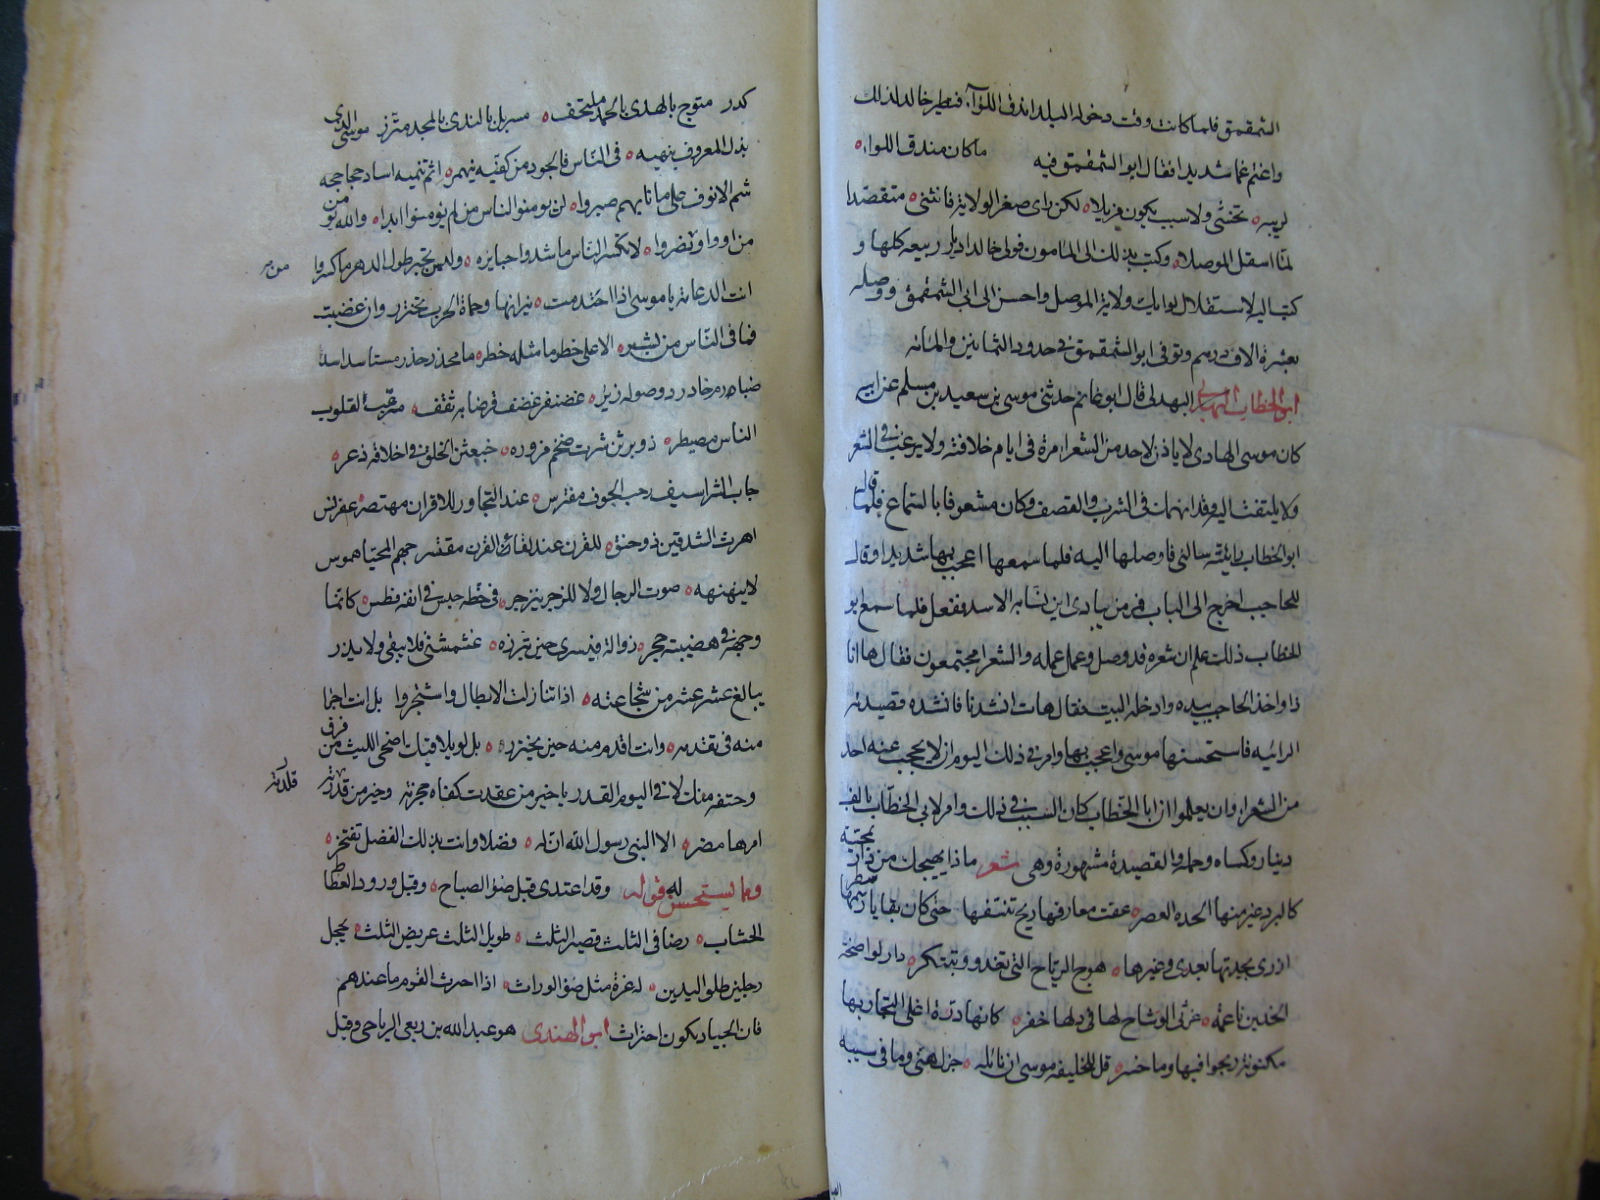 الشمقمق فلما كانت وقت دخوله البلد اندق اللوآء فتطير خالد لذلك
واغتم غما شديدا فقال ابو الشمقمق فيه ما كان مندق اللواء
لريبه تخشى ولا سبب يكون مزيلا لكن راى صغر الولاية فانثنى متقصدا
لما استقل الموصلا وكتب بذلك الى المامون فولى خالدا ديار ربيعه كلها و
كتب اليه لاستقلال لوايك ولاية الموصل واحسن الى ابى الشمقمق ووصله
بعشرة الاف درهم وتوفى ابو الشمقمق فى حدود الثمانين والمائه
ابو الخطاب البهدلى قال ابو غانم حدثنى موسى بن سعيد بن مسلم عن ابيه
كان موسى الهادى لا ياذن لاحد من الشعراء مرة فى ايام خلافته ولا يرغب فى الشعر
ولا يلتفت اليه وقد انهمك فى الشرب والقصف وكان مشعوفا بالسماع فلما قال
ابو الخطاب رايته سالنى فاوصلها اليه فلما سمعها اعجب بها شديدا وقال
للحاجب اخرج الى الباب فمر من ينادى اين نسابة الاسد ففعل فلما سمع ابو
الخطاب ذلك علم ان شعره قد وصل وعمل عمله والشعرا مجتمعون فقال ها انا
ذا واخذ الحاجب بيده وادخله البيت فقال هات انشدنا فانشده قصيدته
الرائيه فاستحسنها موسى واعجب بها وامر فى ذلك اليوم ان لا يحجب عنه احد
من الشعراء وان يعلموا ان ابا الخطاب كان السبب فى ذلك وامر لابى الخطاب بالف
دينار وكساه وحمله والقصيدة مشهورة وهى شعر ماذا يهيجك من دار بمحنية
كالبرد غير منها الجدة العصر عفت معارفها ريح تنسفها حتى كان بقايا رسمها سطر
ازرى بجدتها بعدى وغيرها هوج الرياح التى تغدو وتبتكر دار لواضحة
الخدين ناعمه غرثى الوشاح لها فى دلها خفر كانها درة اغلى التجار بها
مكنونة ربحوا فيها وما خسروا قل للخليفه موسى ان نائله جزل هنى وما فى سيبه
كدر متوج بالهدى بالحمد ملتحف مسربل بالندى بالمجد متزر موسى الذى
بذل المعروف ينهبه فى الناس فالجود من كفيه ينهمر اشم تنميه اساد حجاجحه
شم الانوف على ما نابهم صبروا لن يومنوا الناس من لم يومنوا ابدا والله يومن
من اووا ونصروا لا يكسر الناس ما شدوا جبايره وليس يجبر طول الدهر ما كسروا
انت الدعامة يا موسى اذا احتدمت نيرانها وحماة الحرب تجتزر وان غضبت
فما فى الناس من بشر الا على خطر ما مثله خطر ما مخدر خدر مستاسد اسد
ضبارم خادر ذو صولة زئر غضنفر غضف قرضابة ثقف مسترعب لقلوب
الناس مصيطر ذو برثن شرث ضخم مزوره خبعثن الخلق فى اخلاقه ذعر
جاب الشراسيف رحب الجوف مفترس عند التجاور للاقران مهتصر عفرنس
اهرت الشدقين ذو حنق للقرن عند لقاء القرن مقتسر جهم المحيا هموس
لا ينهنهه صوت الرجال ولا للزجر ينزجر فى خطمه خنس فى انفه فطس كانما
وجهه فى هضبته حجر
يبالغ عشر عشر من شجاعته اذا تنازلت الابطال واشتجروا بل انت اجرا
منه فى تقدمه وانت اقدم منه حين يجتزر بل لو يلاقيك اضحى الليث من فرق
وحتفه منك لاقى اليوم القدر يا خير من عقدت كفاه حجزته وخير من قلدته
امرها مضر الا النبى رسول الله ان له فضلا وانت بذلك الفضل تفتخر
ومما يستحسن له قوله وقد اغتدى قبل ضوء الصباح وقبل ورود القطا
الحثاث رضا فى الثلث قصير الثلث طويل الثلث عريض الثلث
رجلين طلو اليدين له غرة مثل ضوء الوراث اذا احرث القوم ما عندهم
فان الجياد يكون احتراث ابو الهندى هو عبد الله بن ربعى الرياحى وقيل
قلدته